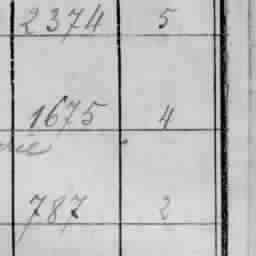 2374 5
1675 4
787 2